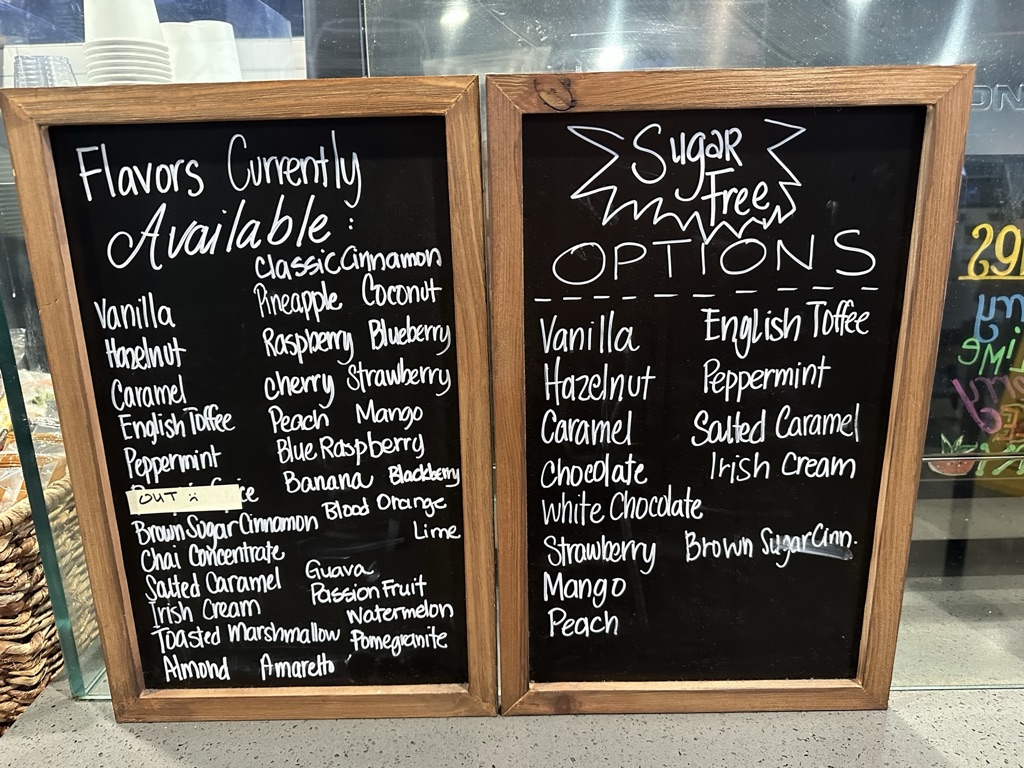 Flavors Currently
Available:
Classic Cinnamon
Vanilla
Pineapple Coconut
Hazelnut
Raspberry Blueberry
Caramel
Cherry Strawberry
English Toffee
Peach Mango
Peppermint
Blue Raspberry
OUT :(
Banana Blackberry
Brown Sugar Cinnamon
Blood Orange
Lime
Chai Concentrate
Guava
Salted Caramel
Passion Fruit
Irish Cream
Watermelon
Toasted Marshmallow
Pomegranite
Almond Amaretto
Sugar
Free
OPTIONS
Vanilla
English Toffee
Hazelnut
Peppermint
Caramel
Salted Caramel
Chocolate
Irish Cream
White Chocolate
Strawberry
Brown Sugar Cinn.
Mango
Peach